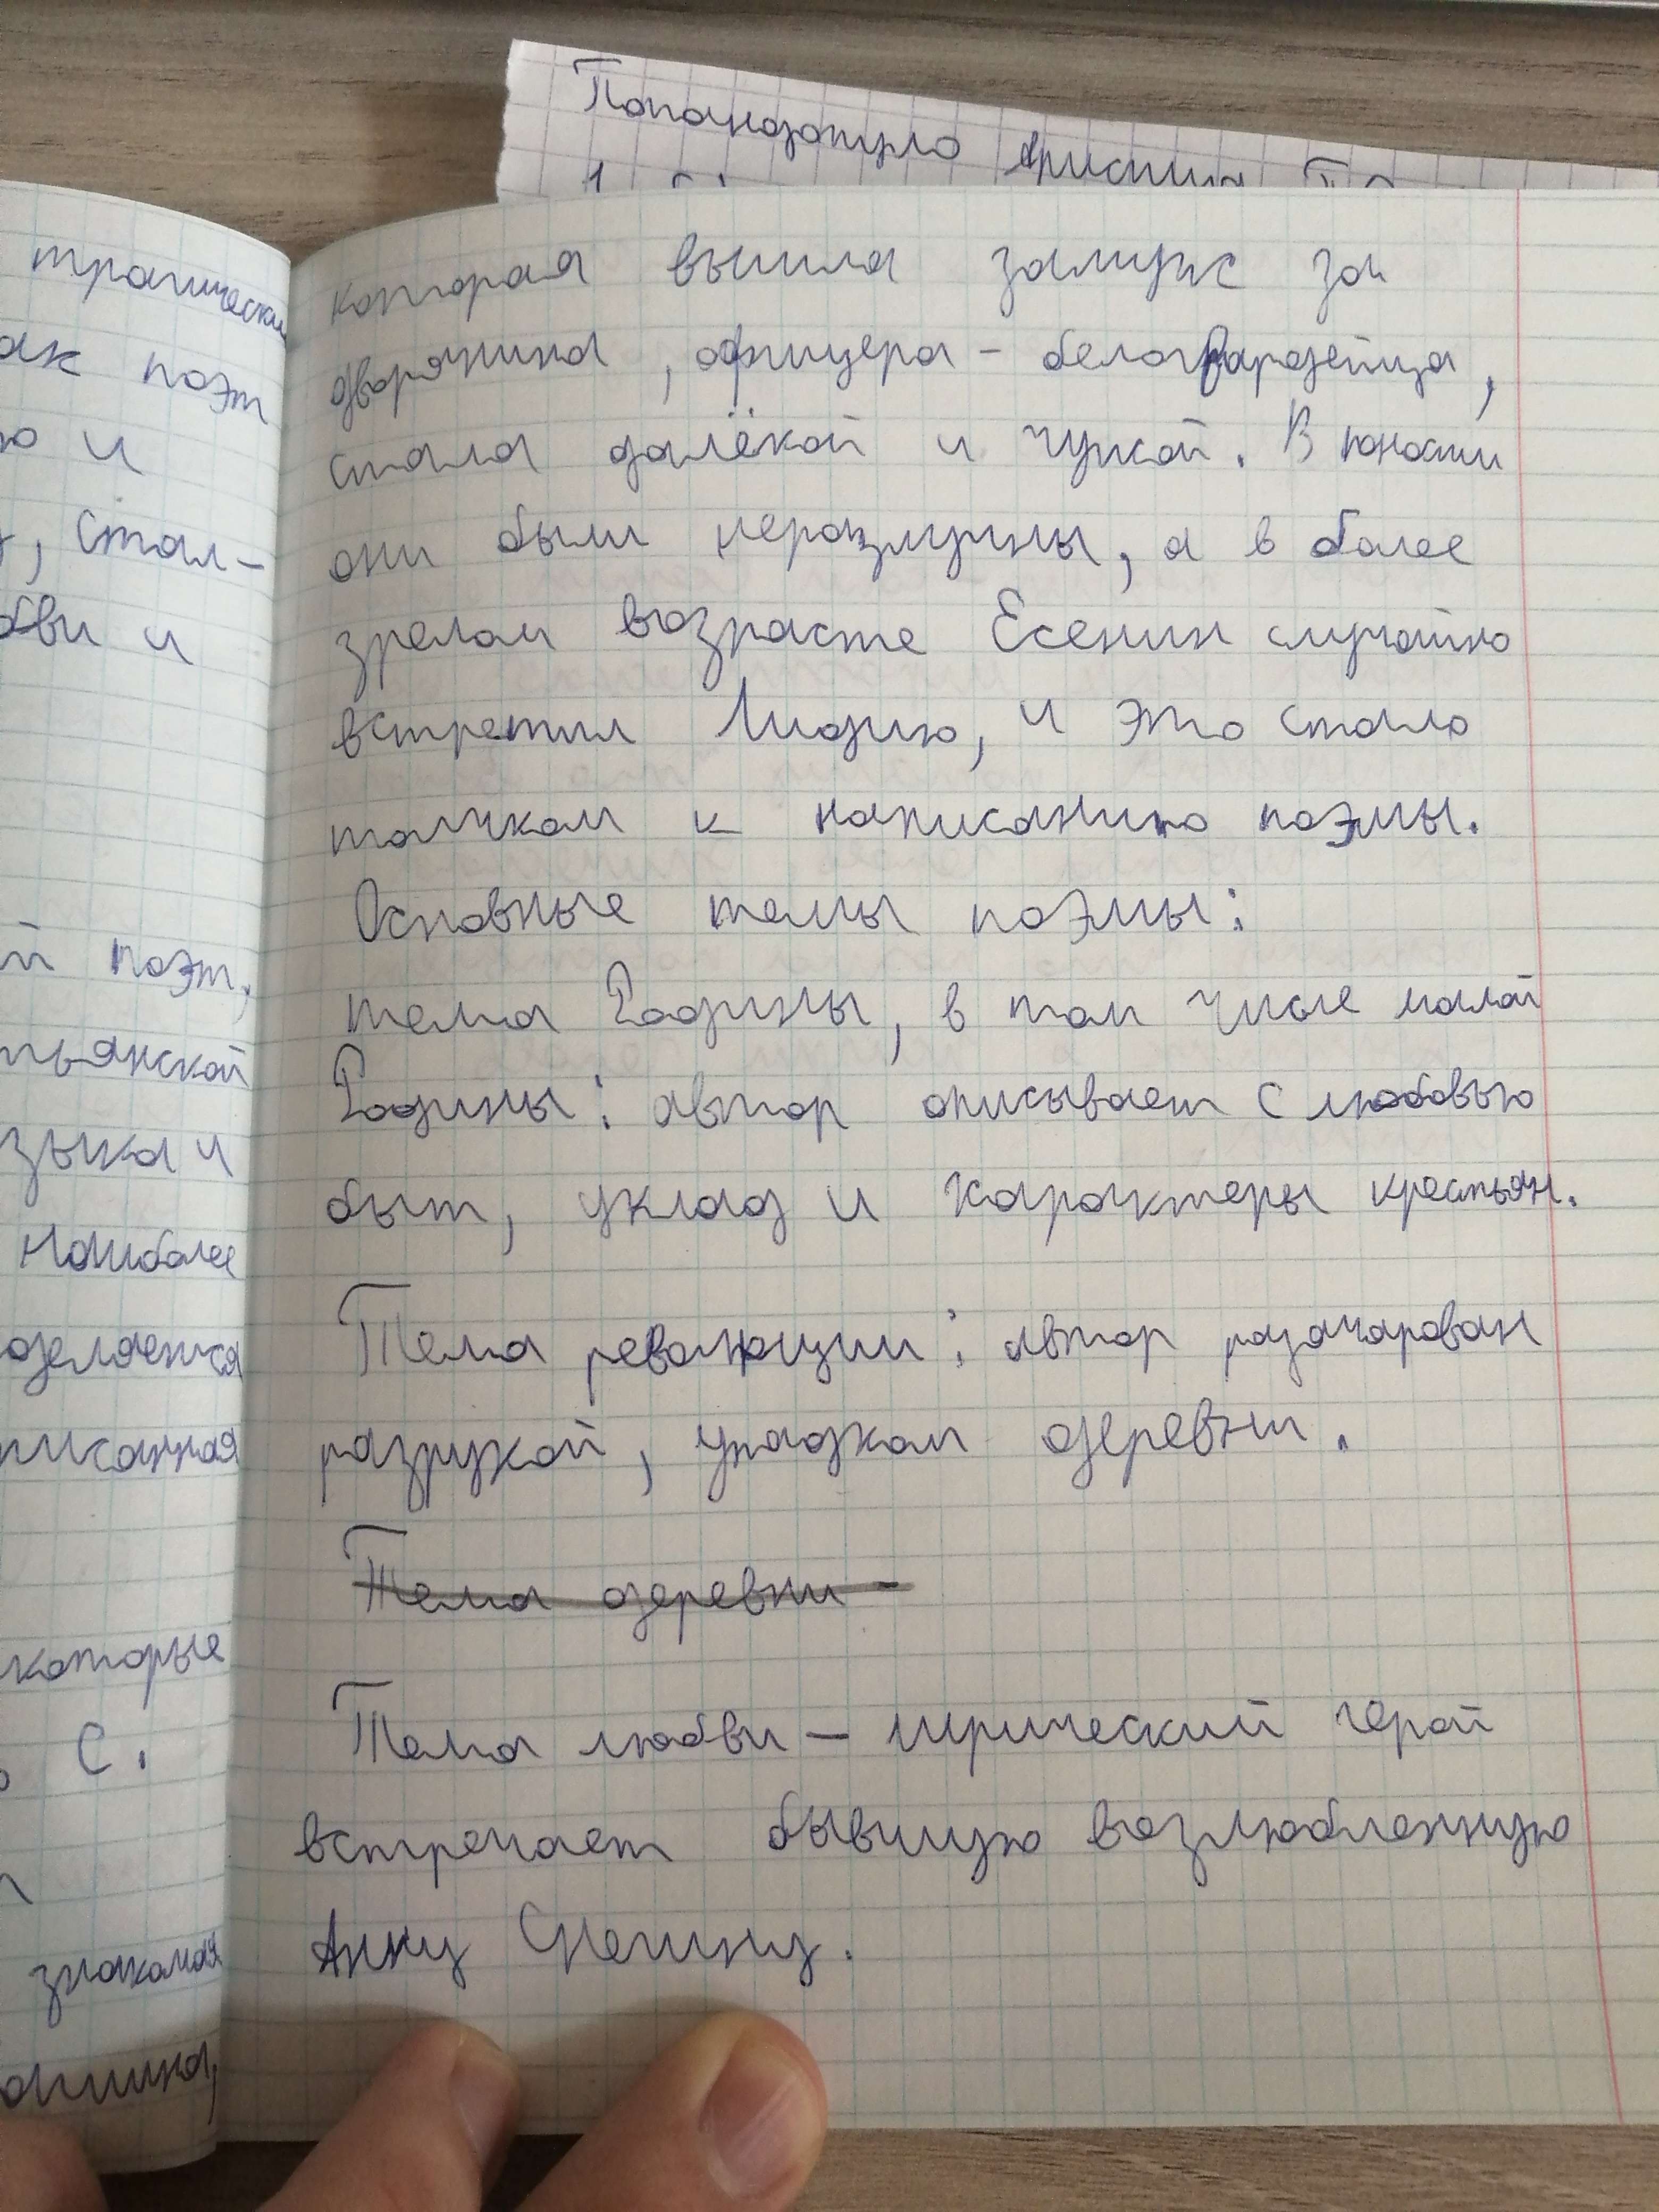 Попандопуло Кристина
трагически
ак поэт
ю и
, стал-
юбви и
й поэт,
тьянской
зыка и
Наиболее
деляется
писанная
которые
С.
знакомая
ашина,
которая вышла замуж за
дворянина, офицера - белогвардейца,
стала далёкой и чужой. В юности
они были неразлучны, а в более
зрелом возрасте Есенин случайно
встретил Лидию, и это стало
толчком к написанию поэмы.
Основные темы поэмы:
тема Родины, в том числе малой
Родины: автор описывает с любовью
быт, уклад и характеры крестьян.
Тема революции: автор разочарован
разрухой, упадком деревни.
Тема деревни -
Тема любви - лирический герой
встречает бывшую возлюбленную
Анну Снегину.